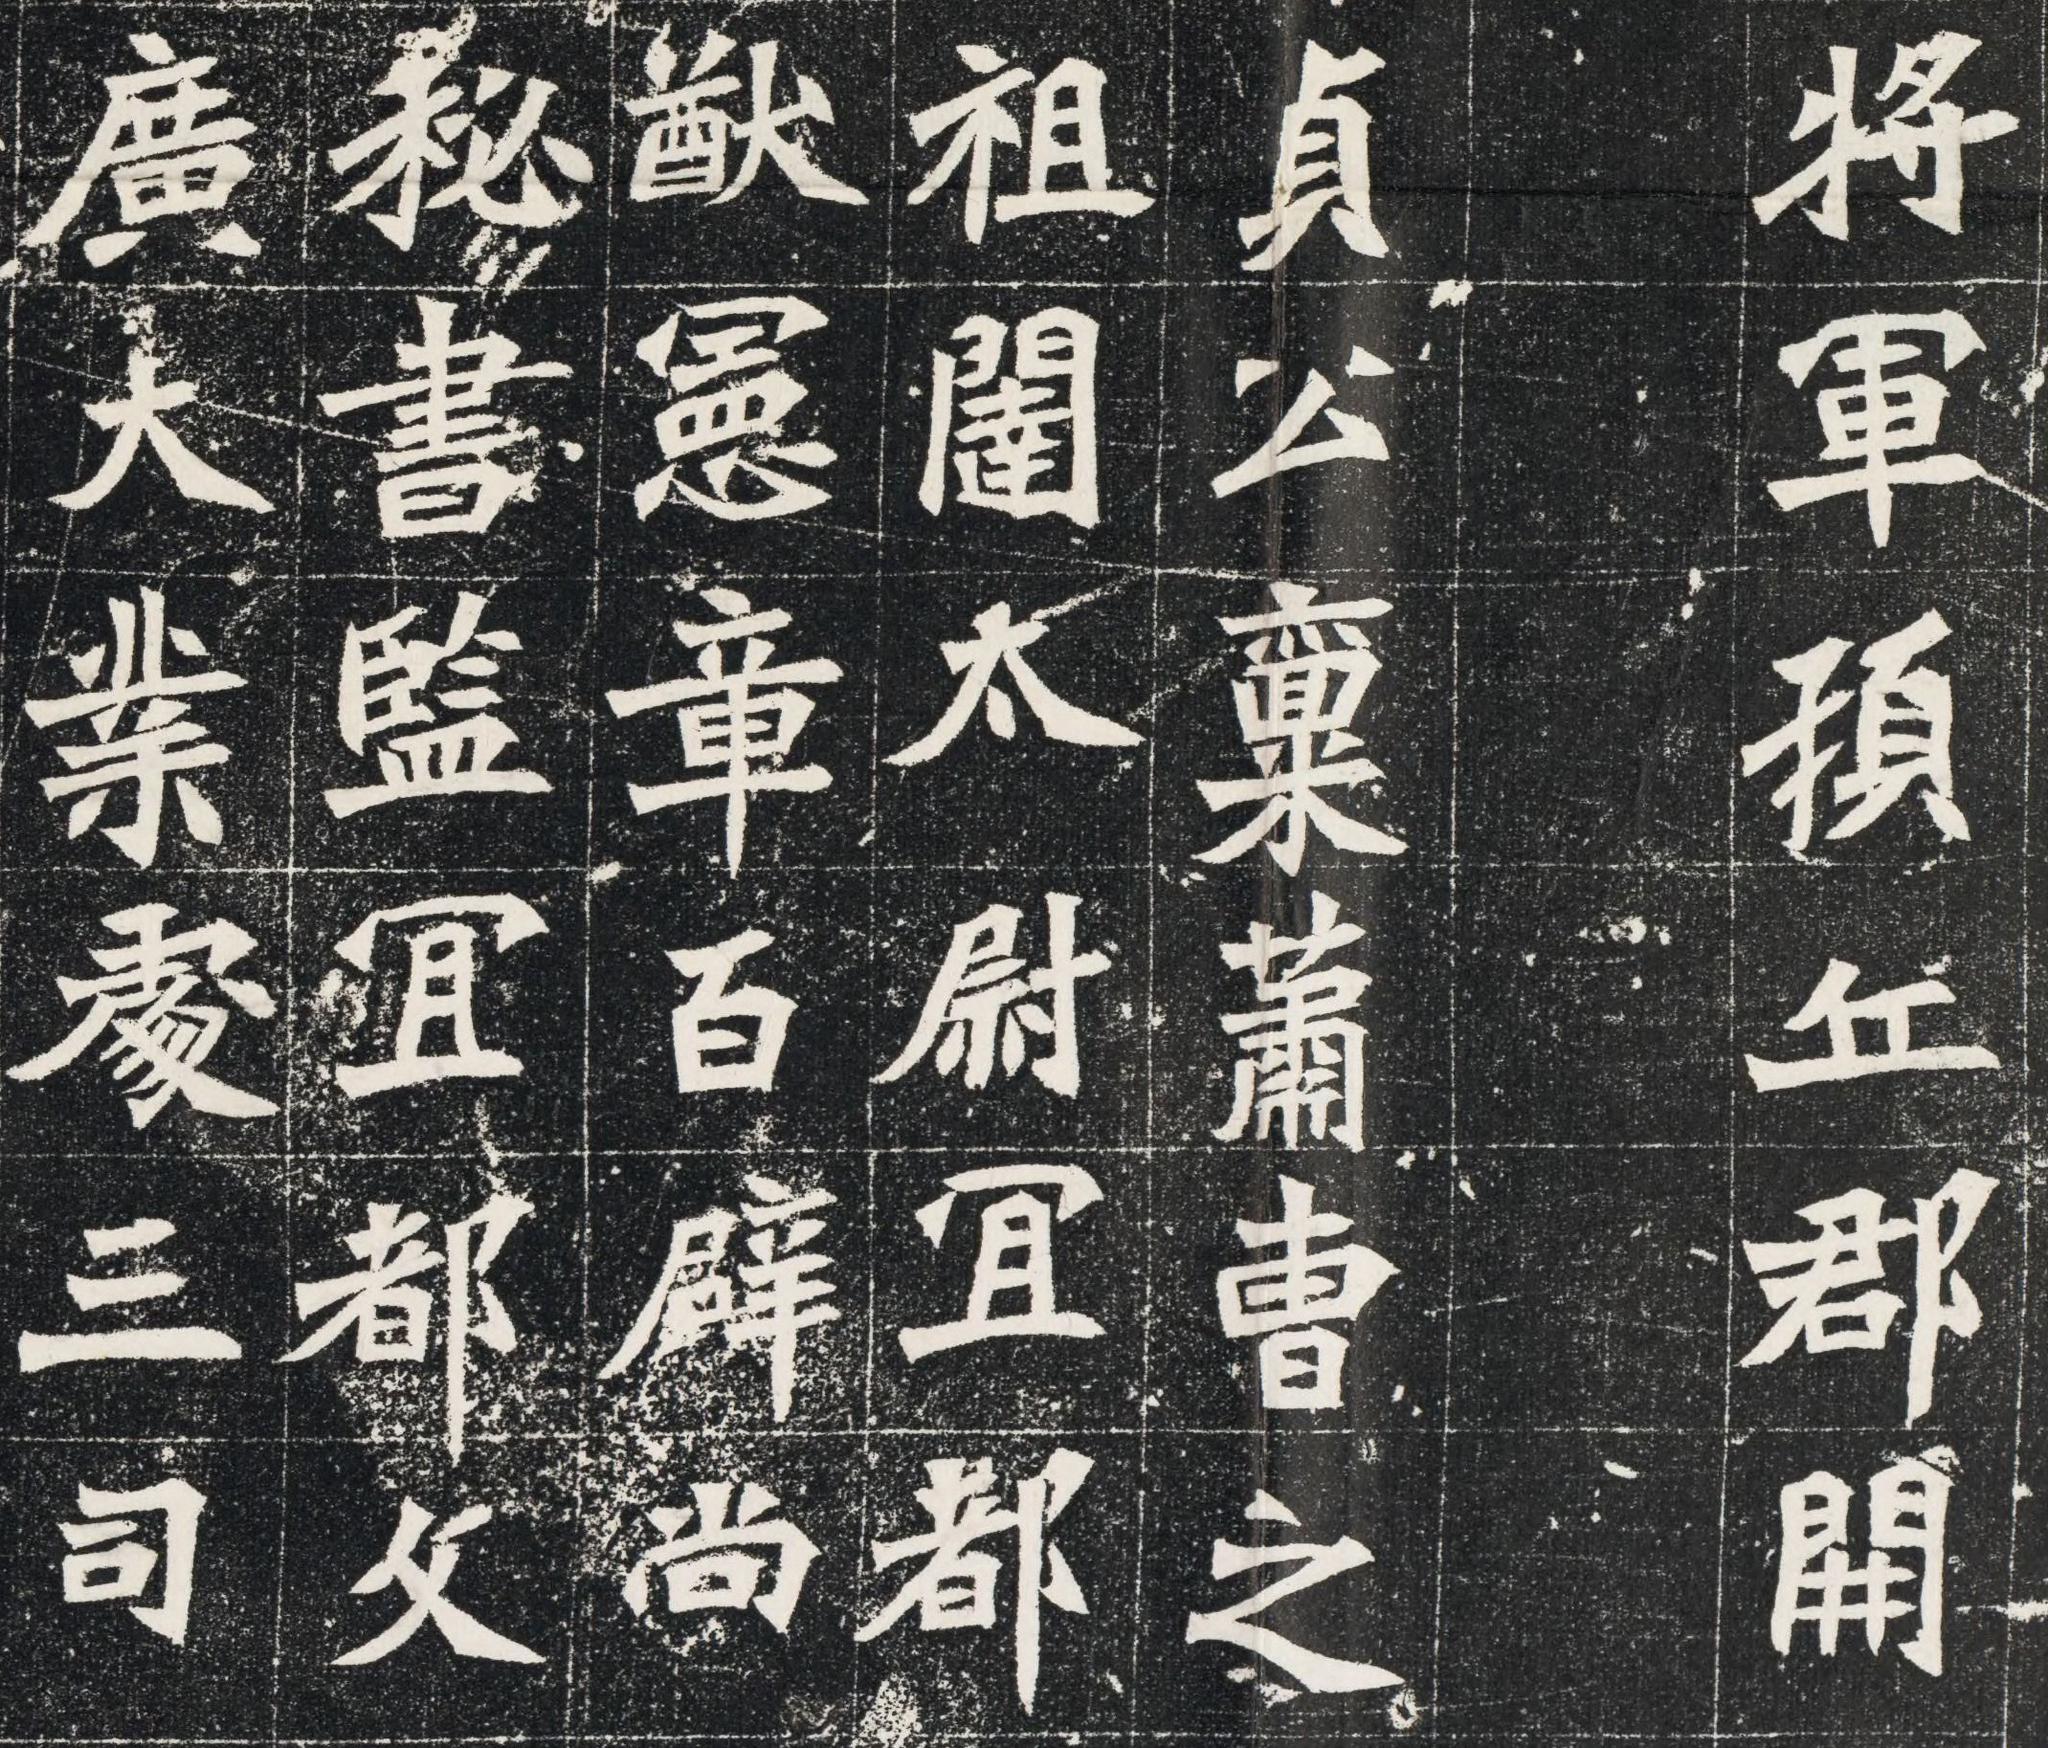 將軍頓丘郡開
貞公稟蕭曹之
祖闡太尉宜都
猷憲章百辟尚
秘書監宜都父
廣大業處三司